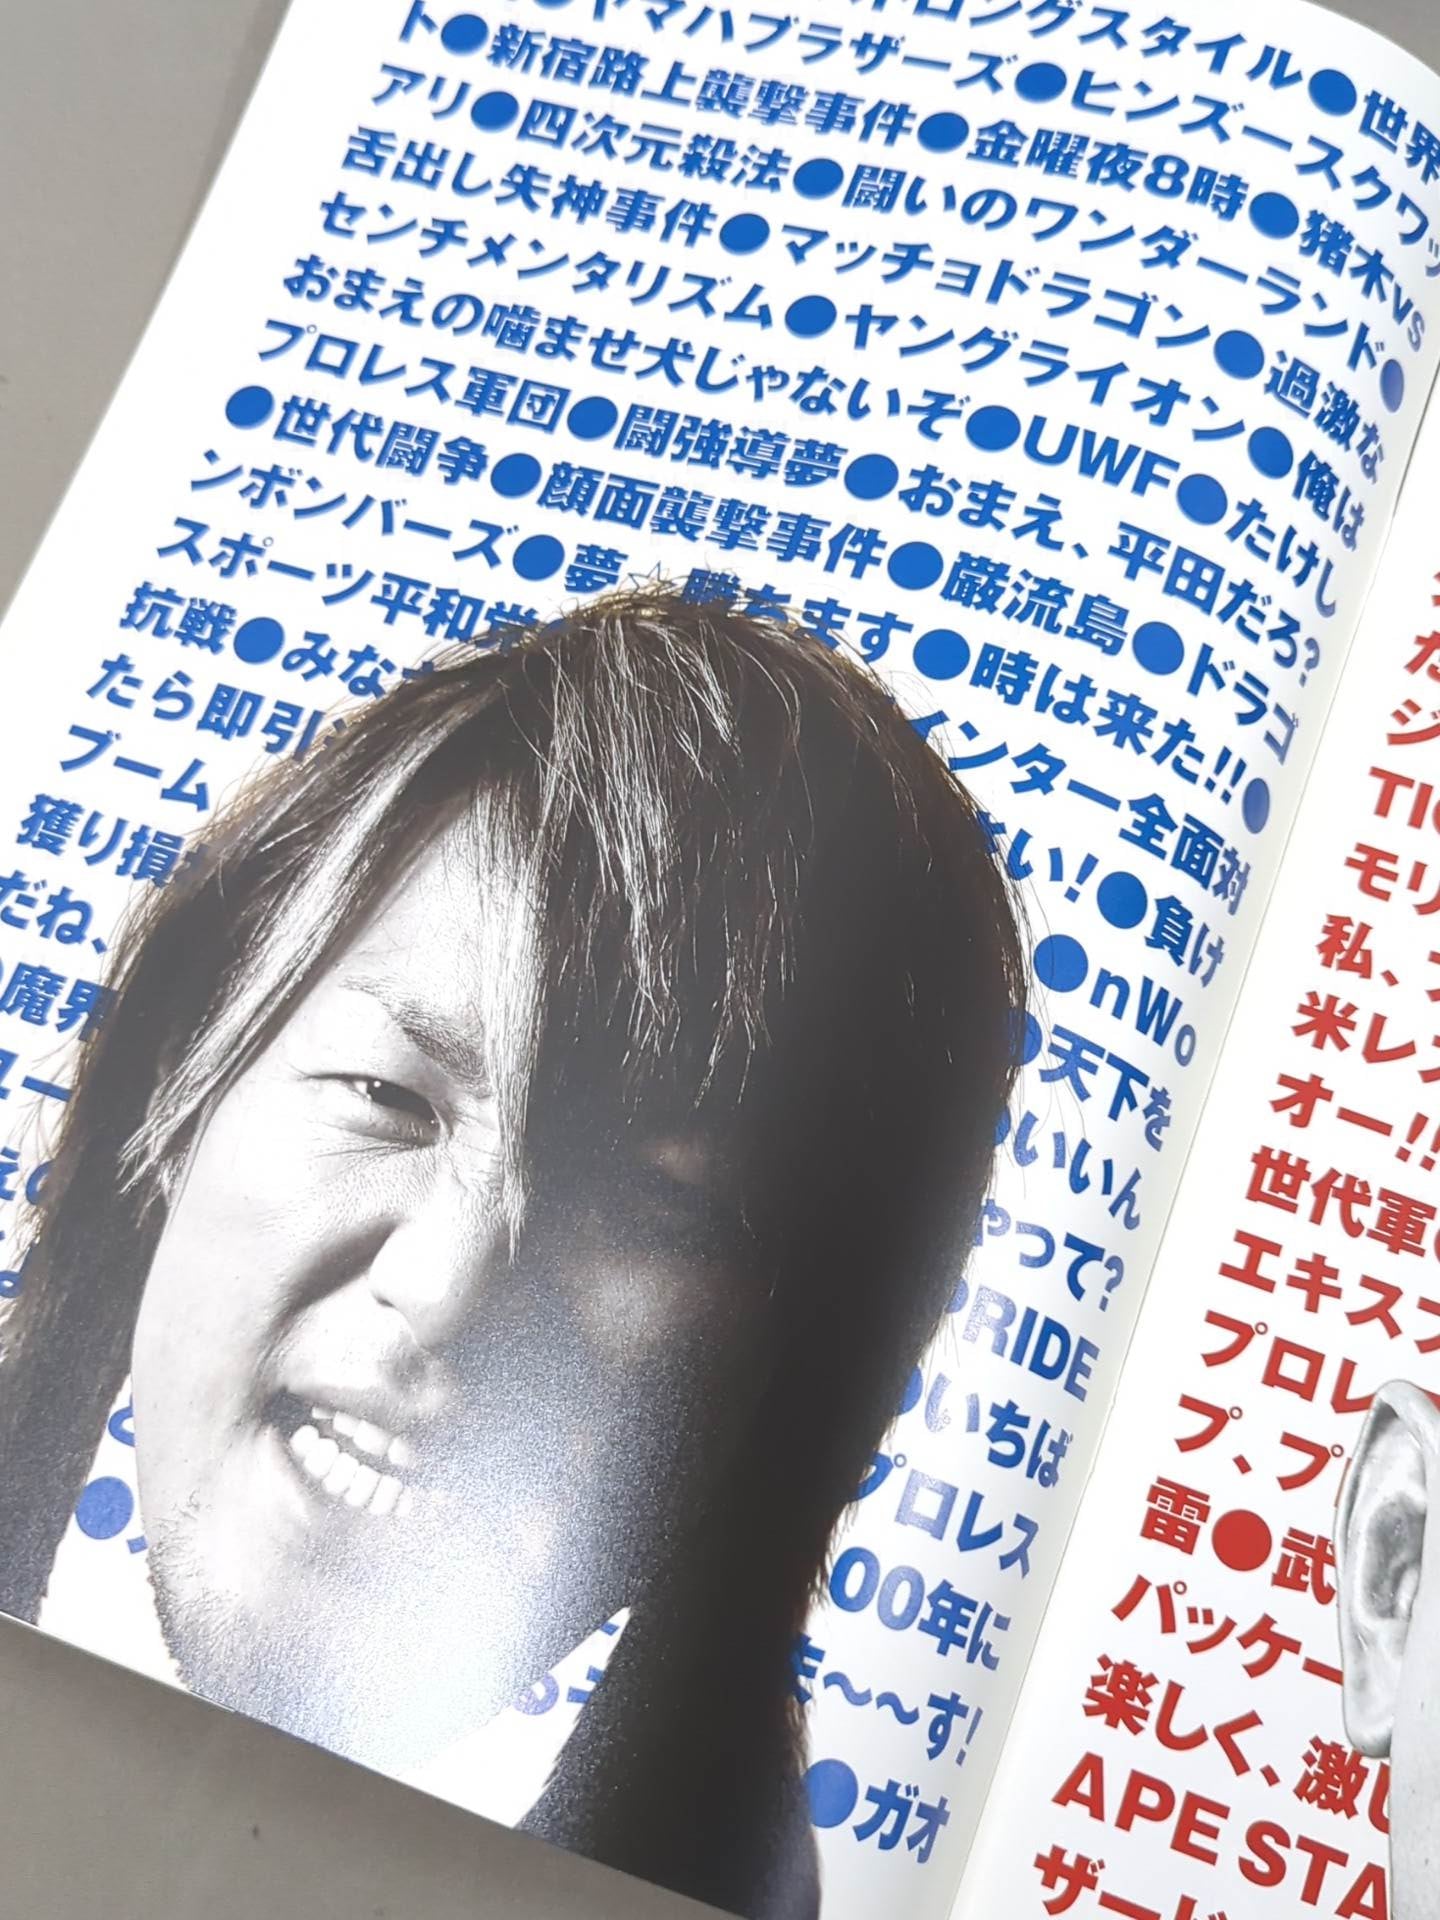 ロングスタイル●世界
●ヤマハブラザーズ●ヒンズースクワッ
ト●新宿路上襲撃事件●金曜夜8時●猪木vs
アリ●四次元殺法●闘いのワンダーランド●
舌出し失神事件●マッチョドラゴン●過激な
センチメンタリズム●ヤングライオン●俺は
おまえの噛ませ犬じゃないぞ●UWF●たけし
プロレス軍団●闘強導夢●おまえ、平田だろ?
●世代闘争●顔面襲撃事件●巌流島●ドラゴ
ンボンバーズ●夢☆勝ちます●時は来た!!●
スポーツ平和党 インター全面対
抗戦●みな さい!●負け
たら即引 ●nWo
ブーム ●天下を
獲り損 いいん
だね、 ゃって?
●魔界 PRIDE
ュー ●いちば
えの プロレス
00年に
ま〜〜す!
●ガオ
た
ジ
TIG
モリ
私、
米レス
オー!!
世代軍●
エキスプ
プロレ
プ、プ
雷●武
パッケー
楽しく、激し
APE STA
ザード